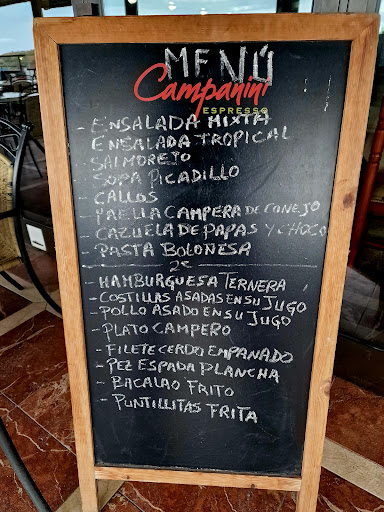 MENÚ
Campanini
ESPRESSO
- ENSALADA MIXTA
ENSALADA TROPICAL
- SALMOREJO
- SOPA PICADILLO
- CALLOS
- PAELLA CAMPERA DE CONEJO
- CAZUELA DE PAPAS Y CHOCO
- PASTA BOLOÑESA
2º
- HAMBURGUESA TERNERA
- COSTILLAS ASADAS EN SU JUGO
- POLLO ASADO EN SU JUGO
- PLATO CAMPERO
- FILETE CERDO EMPANADO
- PEZ ESPADA PLANCHA
- BACALAO FRITO
- PUNTILLITAS FRITA